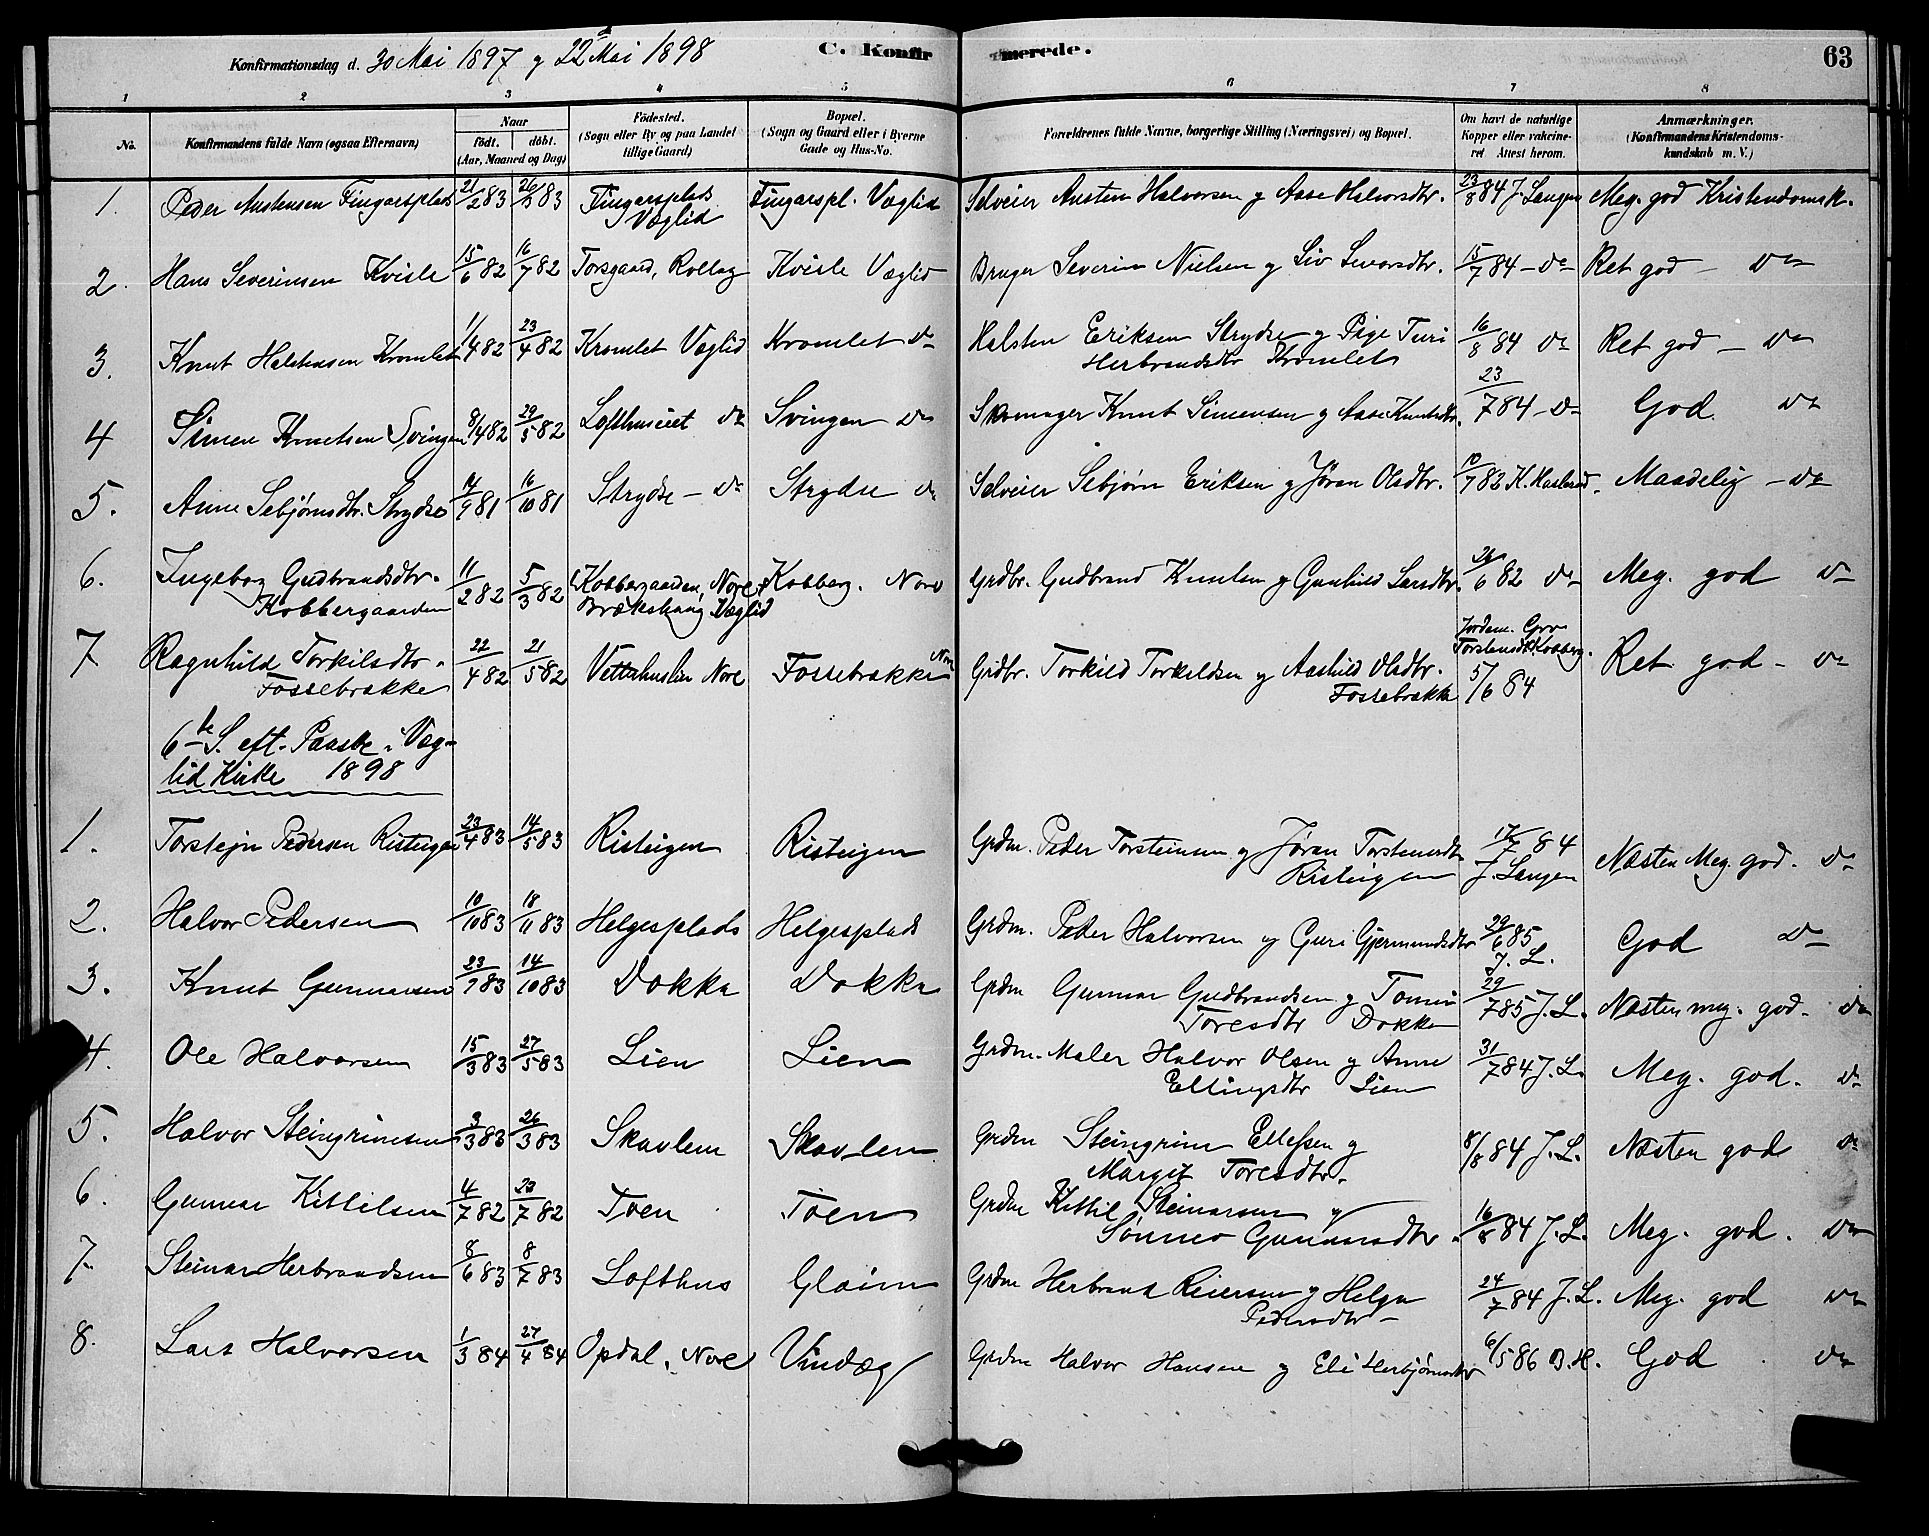 Konfirmationsdag d. 30 Mai 1897 g 22de Mai 1898
C. Konfirmerede.
63
1 2 3 4 5 6 7 8
No.
Konfirmandens fulde Navn (ogsaa Efternavn)
Naar
födt. döbt.
(Aar, Maaned og Dag)
Födested.
(Sogn eller By og paa Landet
tillige Gaard)
Bopæl.
(Sogn og Gaard eller i Byerne
Gade og Hus-No.
Forældrenes fulde Navne, borgerlige Stilling (Næringsvei) og Bopæl.
Om havt de naturlige
Kopper eller vakcine-
ret Attest herom.
Anmærkninger.
(Konfirmandens Kristendoms-
kundskab m. V.)
1. Peder Austensen Fingarsplads 21/2 83 26/3 83 Fingarsplads Væglid Fingarspl. Væglid Selveier Austen Halvorsen g Aase Halvorsdtr. 23/8 84 J. Langen Meg. god Kristendomsk.
2. Hans Severinsen Kvisle 15/6 82 16/7 82 Torsgaard, Rollag Kvisle Væglid Bruger Severin Nielsen g Liv Sevorsdtr. 15/7 84 – do Ret god – do
3. Knut Halstensen Kromlet 1/4 82 23/4 82 Kromlet Væglid Kromlet do Halsten Eriksen Strydse g Pige Turi
Herbrandsdtr Kromlet 16/8 84 do Ret god – do
4 Simen Knutsen Svingen 8/4 82 29/5 82 Lofthuseiet do Svingen do Skomager Knut Simensen g Aase Knutsdtr. 23/7 84 – do God. do
5. Anne Sebjørnsdtr. Strydse 14/9 81 16/10 81 Strydse – do Strydse do Selveier Sebjørn Eriksen g Jøran Olsdtr. 10/7 82 K. Haslerud. Maadelig – do
6. Ingebog Gudbrandsdtr.
Kobbergaarden 11/2 82 5/3 82 Kobbergaarden, Nore
Brækshaug Væglid Kobberg. Nore Grdbr. Gudbrand Knutsen g Gunhild Larsdtr. 24/6 82 do Meg. god do
7 Ragnhild Torkilsdtr.
Fossebrække 22/4 82 21/5 82 Vetterhuslien Nore Fossebrække Nore Grdbr. Torkild Torkildsen g Aashild Olsdtr.
Fossebrække Jordem. Gro
Torstensdtr Kobberg.
5/6 84 Ret god – do
6te S. eft. Paaske. Væg-
lid Kirke 1898
1. Torstejn Pedersen Risteigen 23/4 83 14/5 83 Risteigen Risteigen Grdm. Peder Torsteinsen g Jøran Torstensdtr
Risteigen 17/7 84
J. Langen Næsten Meg. god. do
2. Halvor Pedersen 10/10 83 18/11 83 Helgesplads Helgesplads Grdm. Peder Halvorsen g Guri Gjermundsdtr 29/6 85
J. L. God do
3. Knut Gunnarsen 23/9 83 14/10 83 Dokka Dokka Grdm Gunnar Gudbrandsen g Tomine
Toresdtr Dokken 29/7 85 J. L. Næsten meg. god. do
4. Ole Halvorsen 15/3 83 27/5 83 Lien Lien Grdm. Maler Halvor Olsen g Anne
Ellingsdtr Lien 31/7 84 J. L. Meg. god. do
5. Halvor Steingrimsen 3/3 83 26/3 83 Skavlem Skavlem Grdm Steingrim Ellefsen g
Margit Toresdtr. 8/8 84 J. L. Næsten god do
6. Gunnar Kittilsen 4/7 82 23/7 82 Toen Toen Grdm Kittil Steinarsen g
Sønnev Gunnarsdtr. 16/8 84 J. L. Meg. god. do
7. Steinar Herbrandsen 8/6 83 8/7 83 Lofthus Glaim Grdm Herbrand Reiersen g Helga
Pedersdtr – 24/7 84 J. L. Meg. god do
8. Lars Halvorsen 1/3 84 27/4 84 Opdal, Nore Vindæg Grdm Halvor Hansen g Eli Herbjørnsdtr 6/5 86 B. H. God do